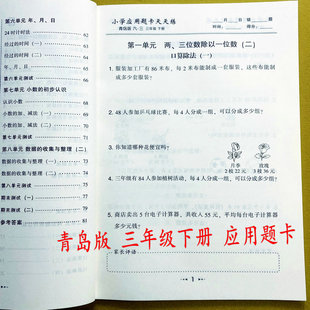 第六单元 年、月、日
24时计时法
经过的时间(一)
经过的时间(二)
年、月、日
第六单元测试
第七单元 小数的初步认识
认识小数
小数的加、减法(一)
小数的加、减法(二)
第七单元测试
第八单元 数据的收集与整理(二)
数据的收集与整理(一) 69
数据的收集与整理(二) 71
第八单元测试 73
期末测试(一) 75
期末测试(二) 77
参考答案 81
小学应用题卡天天练
青岛版 六·三 三年级 下册
第一单元 两、三位数除以一位数(二)
口算除法(一)
1. 服装加工厂有86米布,每2米布能做成一套服装,这些布能做成多少套服装?
2. 48人参加乒乓球比赛,每4人分成一组,可以分成多少组?
3. 你知道哪种花便宜吗?
月季 玫瑰
2枝22元 3枝36元
4. 三年级有84人参加植树活动,每4人分成一组,可以分成多少组?
5. 商店卖出5台电子计算器,共收入55元,平均每台电子计算器多少元钱?
家长评语:
1
青岛版 三年级下册 应用题卡